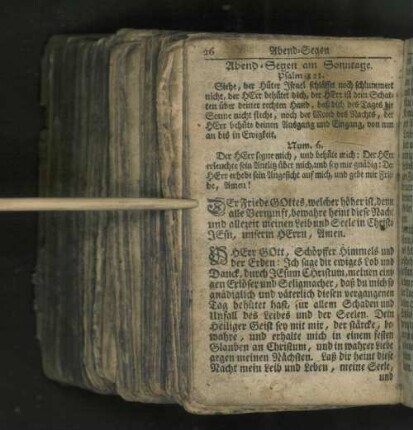 26 Abend-Segen
Abend-Segen am Sonntage.
Psalm 121.
Siehe, der Hüter Israel schläffet noch schlummert
nicht, der HErr behütet dich, der HErr ist dein Schat-
ten über deiner rechten Hand, daß dich des Tages die
Sonne nicht steche, noch der Mond des Nachts, der
HErr behüte deinen Ausgang und Eingang, von nun
an biß in Ewigkeit.
Num. 6.
Der HErr segne mich, und behüte mich: Der HErr
erleuchte sein Antlitz über mich, und sey mir gnädig: Der
HErr erhebe sein Angesicht auf mich, und gebe mir Frie-
de, Amen!
DEr Friede GOttes, welcher höher ist, denn
alle Vernunft, bewahre heint diese Nacht
und allezeit meinen Leib und Seele in Christo
JEsu, unserm HErrn, Amen.
HErr GOtt, Schöpffer Himmels und
der Erden: Ich sage dir ewiges Lob und
Danck, durch JEsum Christum, meinen eini-
gen Erlöser und Seligmacher, daß du mich so
gnädiglich und väterlich diesen vergangenen
Tag behütet hast, für allem Schaden und
Unfall des Leibes und der Seelen. Dein
Heiliger Geist sey mit mir, der stärcke, be-
wahre, und erhalte mich in einem festen
Glauben an Christum, und in wahrer Liebe
gegen meinen Nächsten. Laß dir heint diese
Nacht mein Leib und Leben, meine Seele,
und